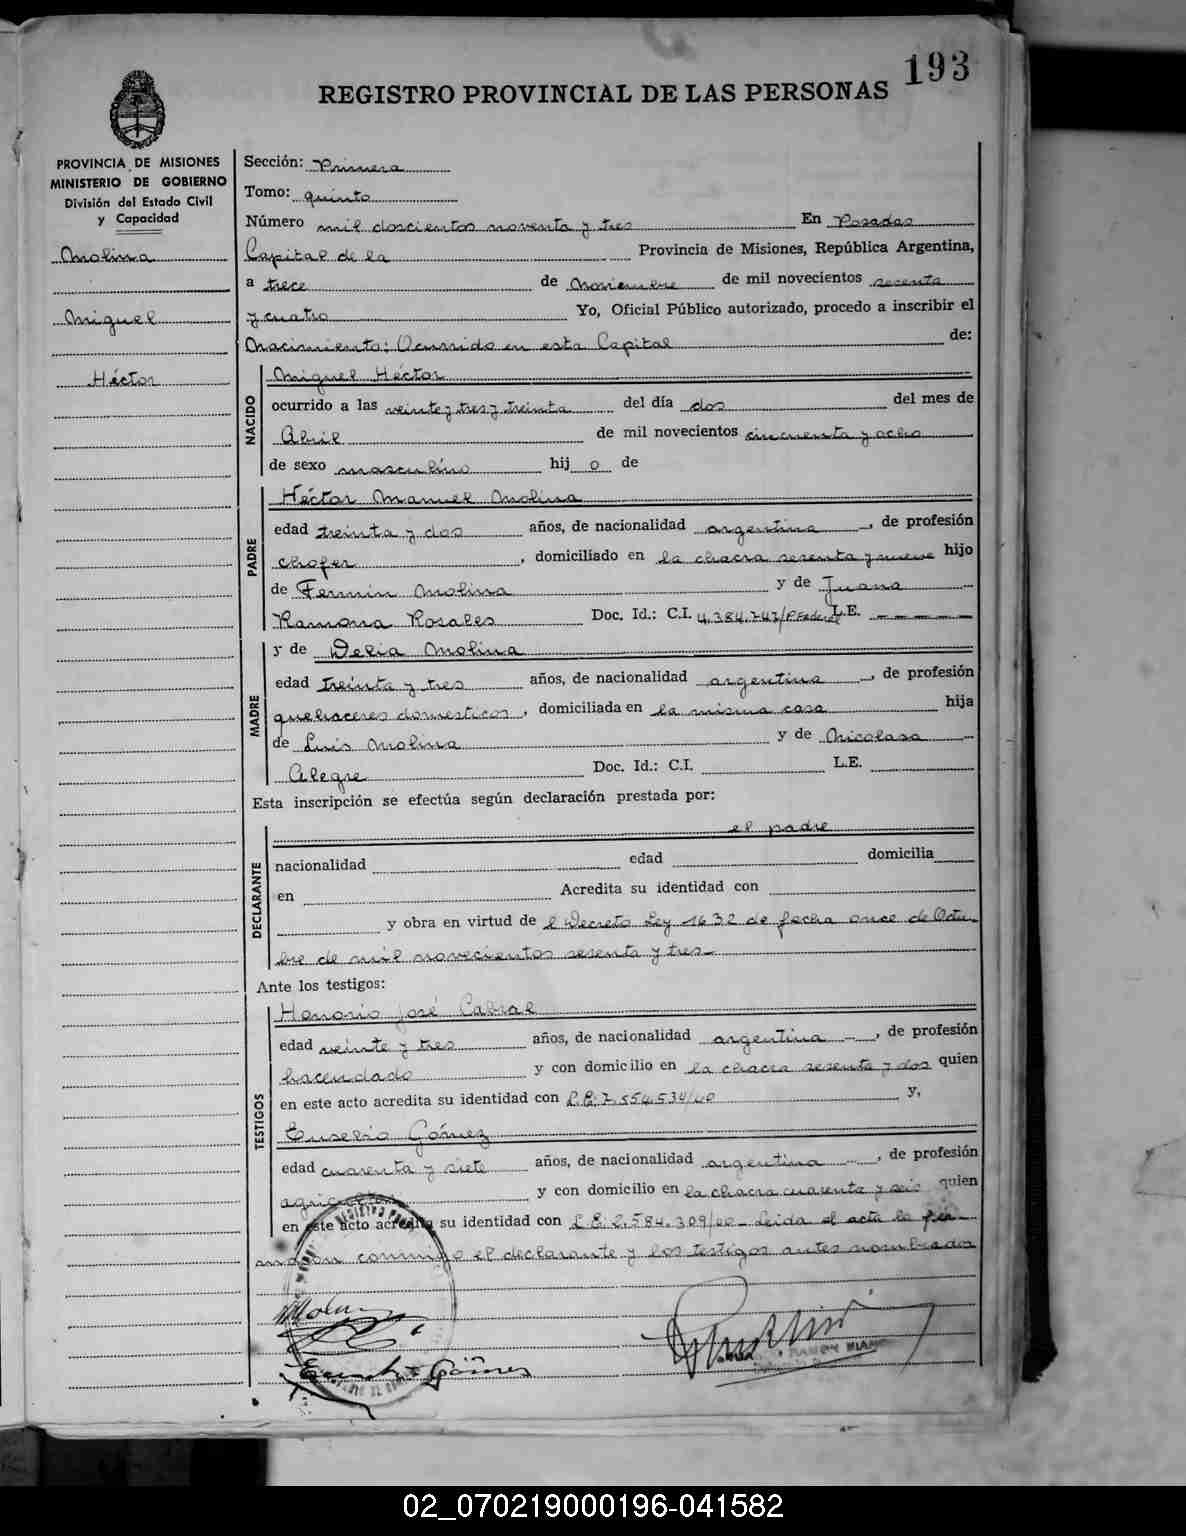 193
REGISTRO PROVINCIAL DE LAS PERSONAS
PROVINCIA DE MISIONES
MINISTERIO DE GOBIERNO
División del Estado Civil
y Capacidad
Molina
Miguel
Héctor
Sección: Primera
Tomo: quinto
Número mil doscientos noventa y tres En Posadas
Capital de la Provincia de Misiones, República Argentina,
a trece de Noviembre de mil novecientos sesenta
y cuatro Yo, Oficial Público autorizado, procedo a inscribir el
Nacimiento: Ocurrido en esta Capital de:
NACIDO
Miguel Héctor
ocurrido a las veinte y tres y treinta del día dos del mes de
Abril de mil novecientos cincuenta y ocho
de sexo masculino hij o de
PADRE
Héctor Manuel Molina
edad treinta y dos años, de nacionalidad argentina, de profesión
chofer, domiciliado en la chacra sesenta y nueve hijo
de Fermin Molina y de Juana
Ramona Rosales Doc. Id.: C.I. 4.384.747/P.Federal L.E. — — — — —
MADRE
y de Delia Molina
edad treinta y tres años, de nacionalidad argentina, de profesión
quehaceres domesticos, domiciliada en la misma casa hija
de Luis Molina y de Nicolasa
Alegre Doc. Id.: C.I. L.E.
Esta inscripción se efectúa según declaración prestada por:
DECLARANTE
el padre
nacionalidad edad domicilia
en Acredita su identidad con
y obra en virtud de l Decreto Ley 1632 de fecha once de Octu-
bre de mil novecientos sesenta y tres—
Ante los testigos:
TESTIGOS
Honorio José Cabral
edad veinte y tres años, de nacionalidad argentina, de profesión
hacendado y con domicilio en la chacra sesenta y dos quien
en este acto acredita su identidad con L.E. 7.554.534/40 y,
Eusebio Gómez
edad cuarenta y siete años, de nacionalidad argentina, de profesión
agricultor y con domicilio en la chacra cuarenta y seis quien
en este acto acredita su identidad con L.E. 2.584.309/00— Leida el acta la fir-
man con conmigo el declarante y los testigos antes nombrados
Molina
Eusebio Gómez
RAMON
02_070219000196-041582